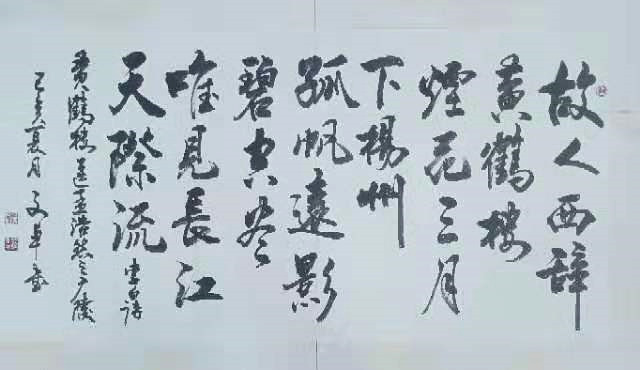 故人西辞
黄鶴楼
煙花三月
下楊州
孤帆遠影
碧空尽
唯見長江
天際流 李白詩
黄鶴楼送孟浩然之广陵
己亥夏月 文卓